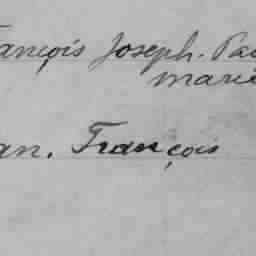 rançois Joseph. Pau
marie
an. François